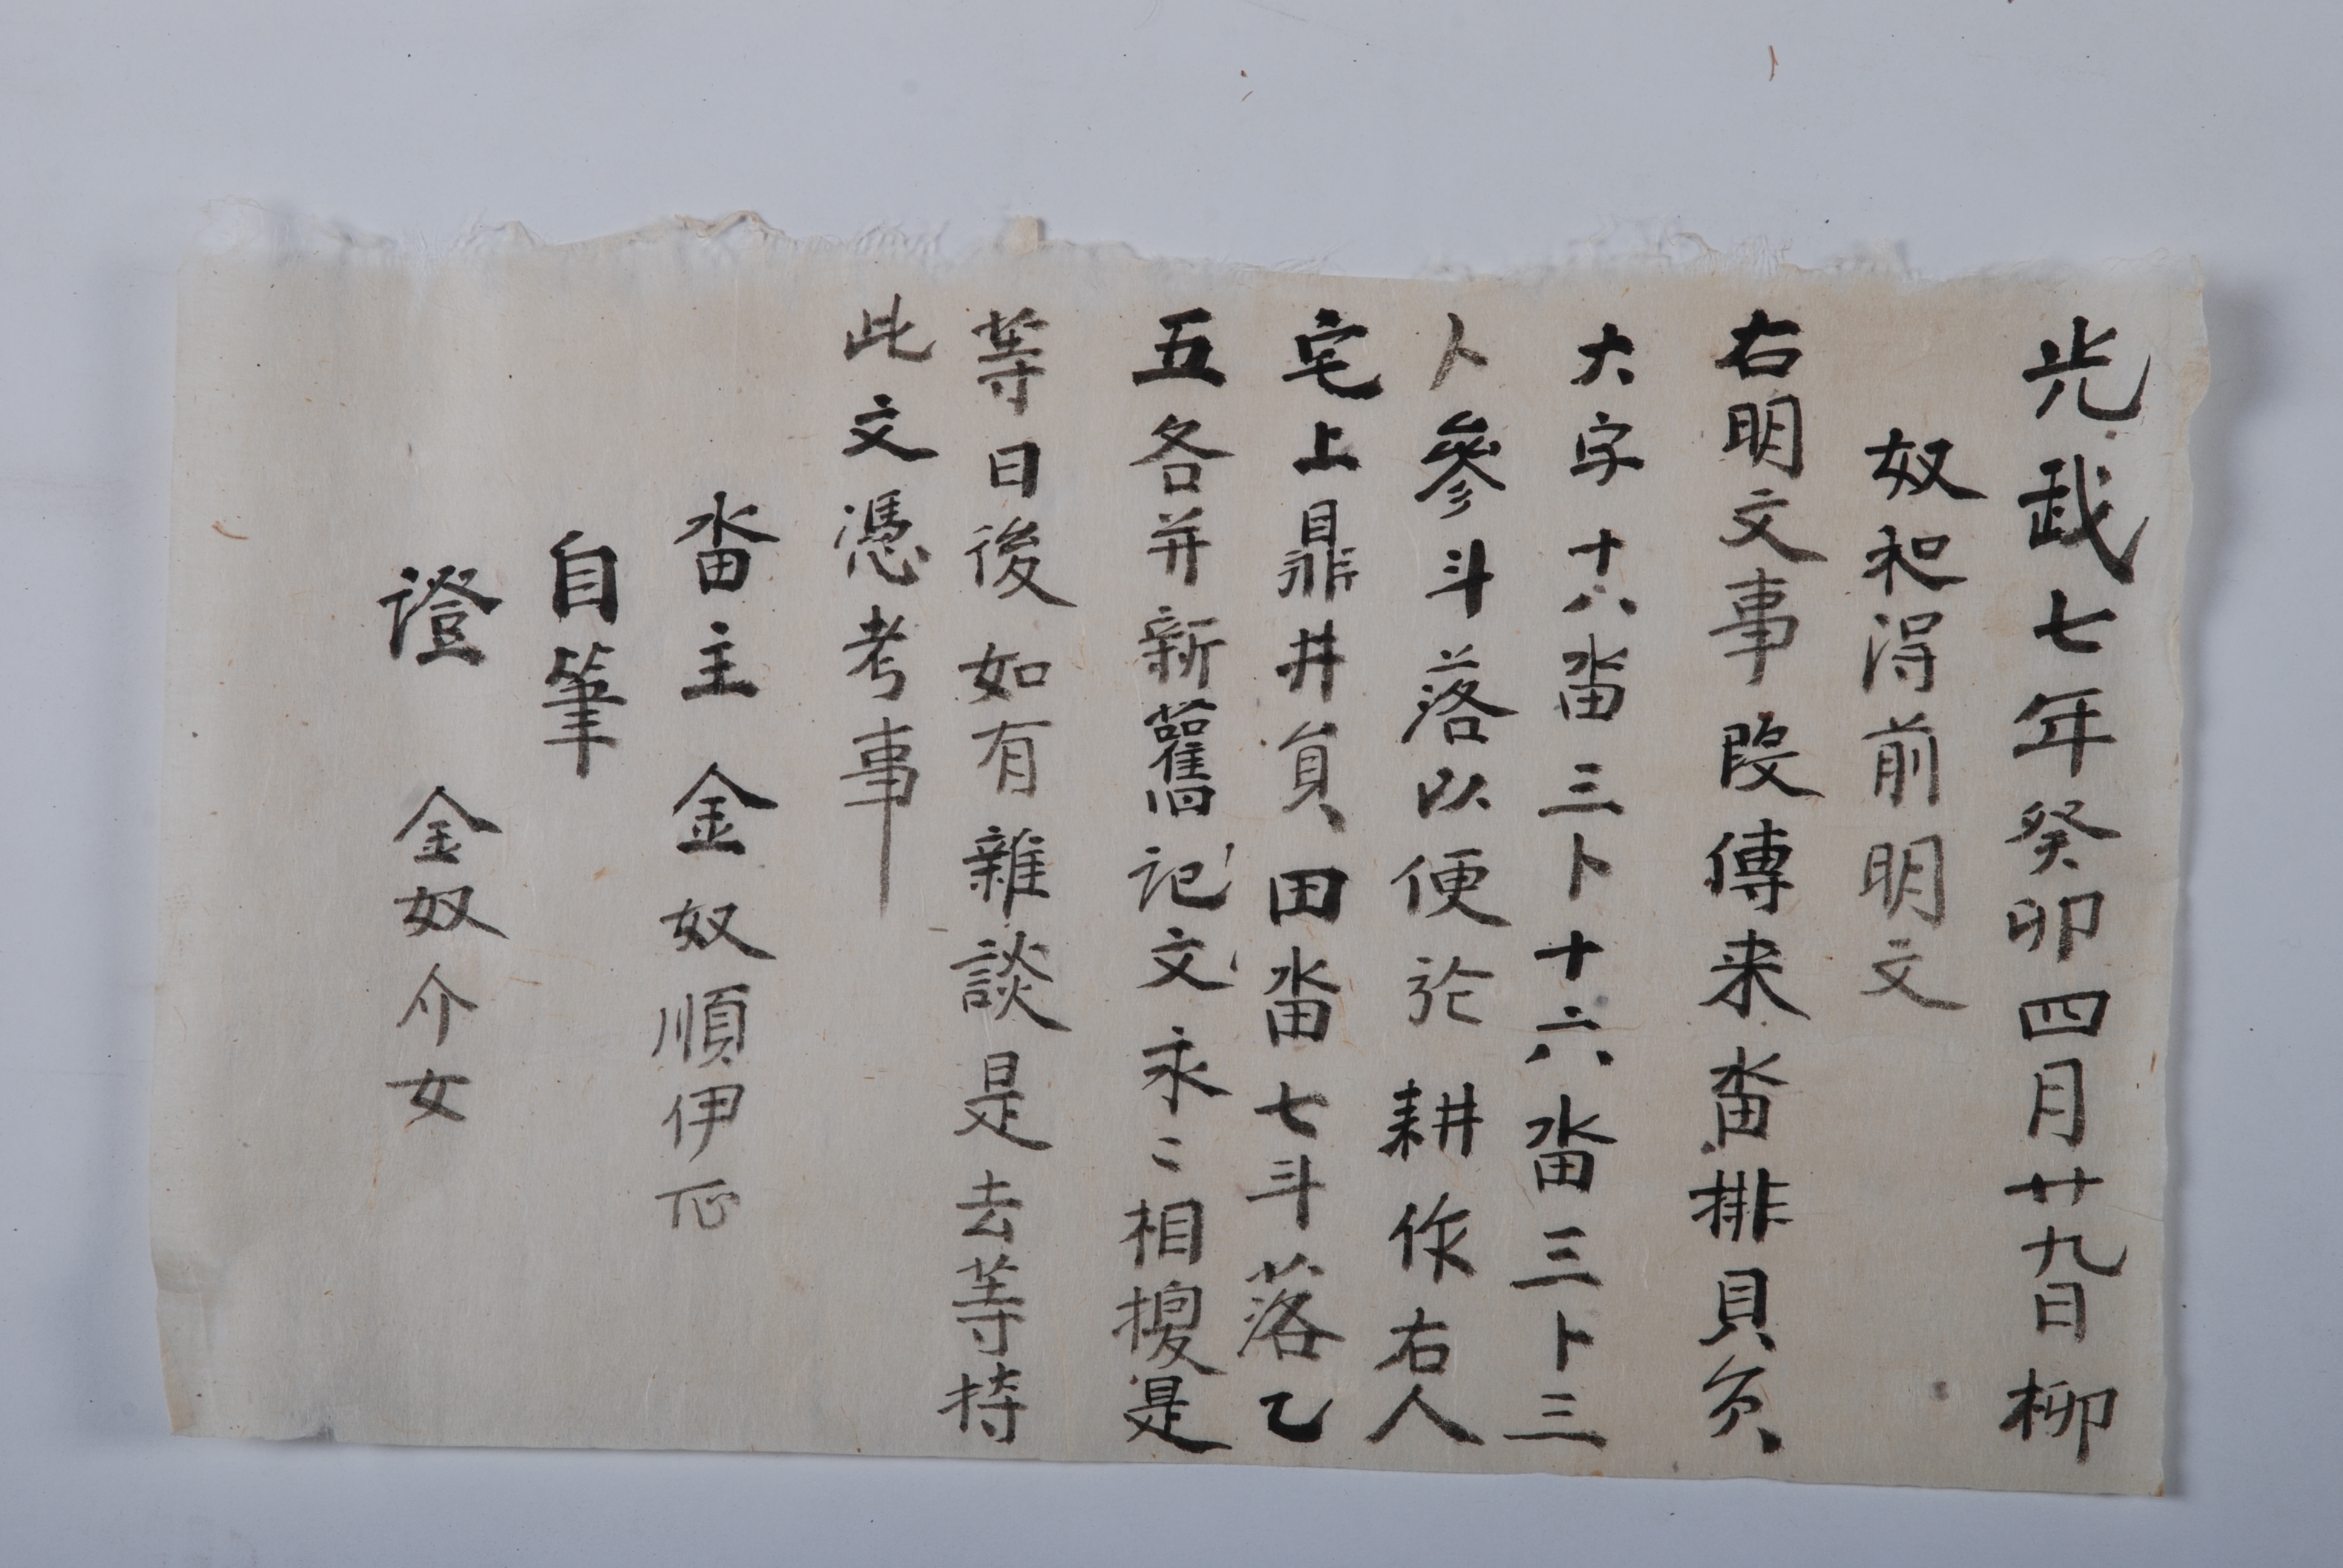 光武七年癸卯四月廿九日柳
奴和得前明文
右明文事段傳来畓排貝負
大字十八畓三卜十六畓三卜三
卜參斗落以便於耕作右人
宅上鼎井員田畓七斗落乙
五各幷新舊記文永〻相換是
等日後如有雜談是去等持
此文憑考事
畓主金奴順伊
自筆
證金奴介女